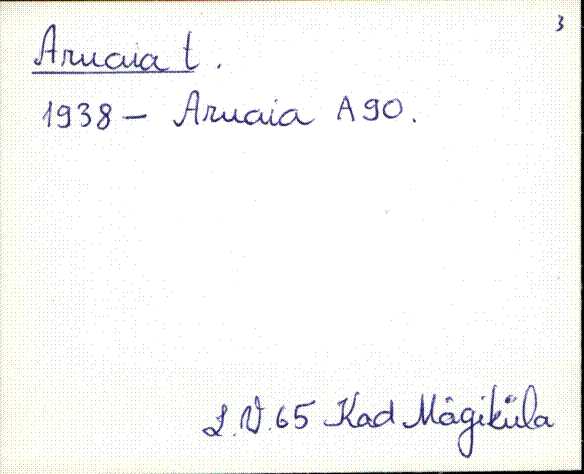 3
Aruaia t.
1938 - Aruaia A90.
L.V. 65 Kad Mägiküla